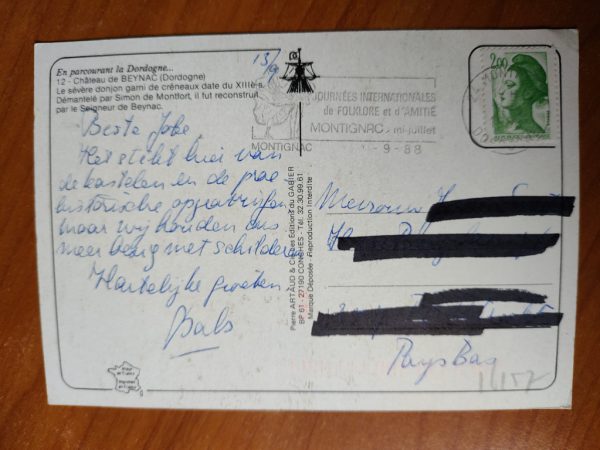 En parcourant la Dordogne...
12 - Château de BEYNAC (Dordogne)
Le sévère donjon garni de créneaux date du XIIIe s.
Démantelé par Simon de Montfort, il fut reconstruit
par le Seigneur de Beynac.
13/9
Beste Joke,
Het stikt hier van
de kastelen en de prae
historische
maar wij houden ons
meer bezig met schilderen
Hartelijke groeten
Bals
Pierre ARTAUD & Cie Editions du GABIER
BP 61 - 27190 CONCHES - Tél. 32.30.99.61
Marque Déposée - Reproduction Interdite
JOURNÉES INTERNATIONALES
de FOLKLORE et d'AMITIÉ
MONTIGNAC - mi-juillet
MONTIGNAC
-9-88
2,00
Mevrouw
Pays Bas